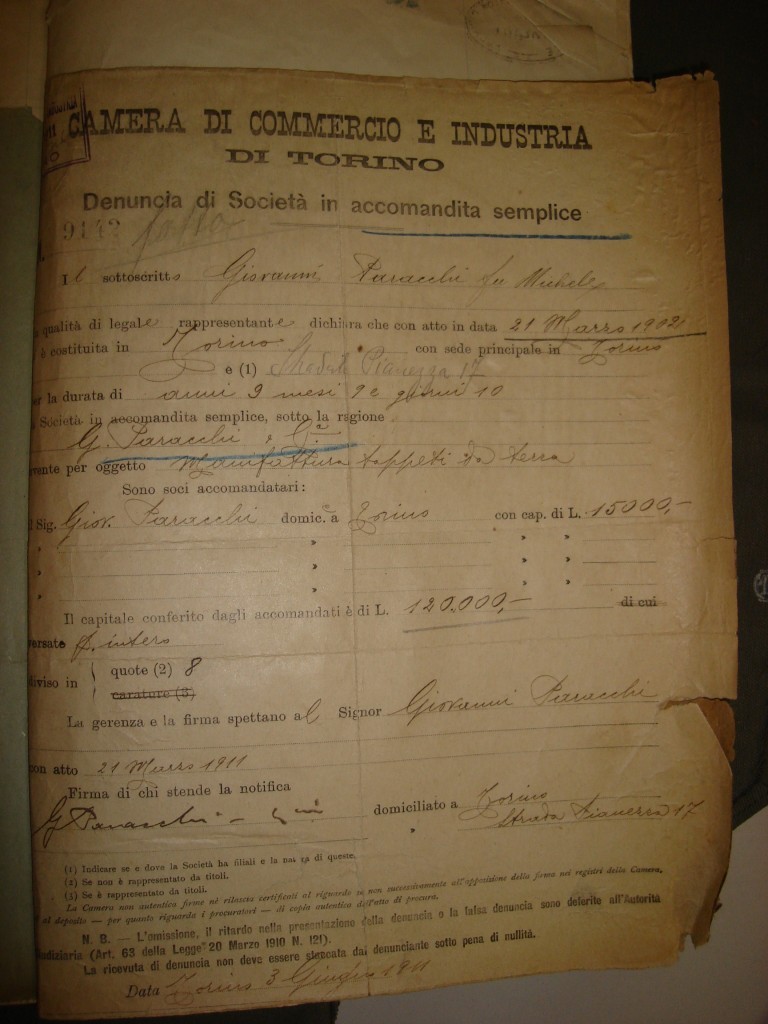 CAMERA DI COMMERCIO E INDUSTRIA
DI TORINO
Denuncia di Società in accomandita semplice
9142
Il sottoscritto Giovanni Paracchi fu Michele
qualità di legale rappresentante dichiara che con atto in data 21 Marzo 1902
è costituita in Torino con sede principale in Torino
e (1) Strada Pianezza 17
per la durata di anni 9 mesi 9 e giorni 10
Società in accomandita semplice, sotto la ragione
G. Paracchi & C.ª
vente per oggetto Manifattura tappeti da terra
Sono soci accomandatari:
Sig. Giov. Paracchi domic. a Torino con cap. di L. 15000,-
" " "
" " "
" " "
Il capitale conferito dagli accomandati è di L. 120.000,- di cui
versato p. intero
diviso in quote (2) 8
carature (3)
La gerenza e la firma spettano al Signor Giovanni Paracchi
con atto 21 Marzo 1911
Firma di chi stende la notifica
G Paracchi domiciliato a Torino
" Strada Pianezza 17
(1) Indicare se e dove la Società ha filiali e la di queste.
(2) Se non è rappresentato da titoli.
(3) Se è rappresentato da titoli.
La Camera non autentica firme nè rilascia certificati al riguardo se non successivamente all'apposizione della firma nei registri della Camera,
al deposito — per quanto riguarda i procuratori — di copia autentica dell'atto di procura.
N. B. — L'omissione, il ritardo nella presentazione della denuncia o la falsa denuncia sono deferite all'Autorità
giudiziaria (Art. 63 della Legge 20 Marzo 1910 N. 121).
La ricevuta di denuncia non deve essere staccata dal denunciante sotto pena di nullità.
Data Torino 3 Giugno 1911